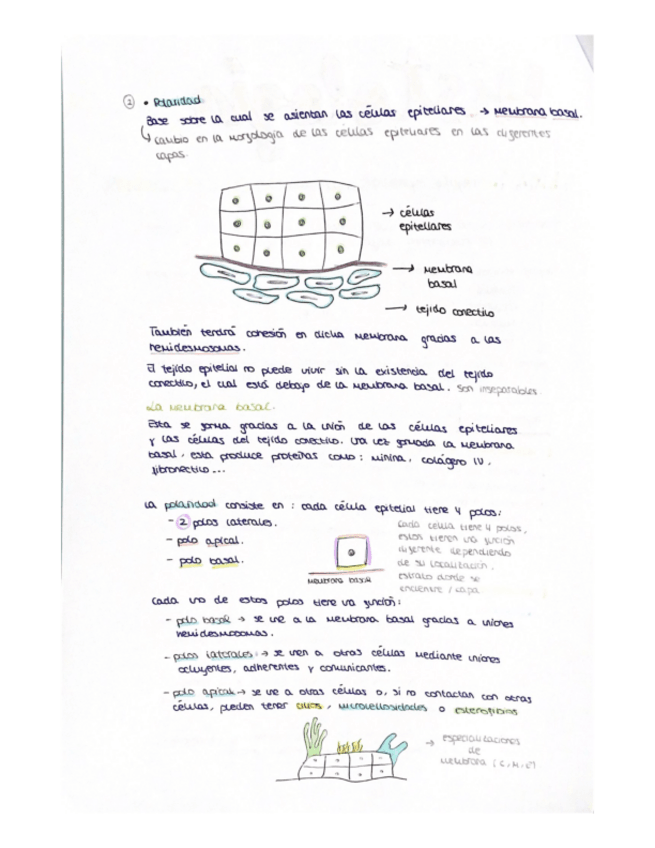 ② • Polaridad
Base sobre la cual se asientan las células epiteliares → Membrana basal.
↳ cambio en la morfología de las células epiteliares en las diferentes
capas.
→ células
epiteliares
→ Membrana
basal
→ tejido conectivo
También tendrá cohesión en dicha membrana gracias a las
hemidesmosomas.
El tejido epitelial no puede vivir sin la existencia del tejido
conectivo, el cual está debajo de la membrana basal. Son inseparables
La membrana basal.
Esta se forma gracias a la unión de las células epiteliares
y las células del tejido conectivo. Una vez formada la membrana
basal, esta produce proteínas como: minina, colágero IV,
fibronectivo...
La polaridad consiste en: cada célula epitelial tiene 4 polos:
- 2 polos laterales.
- polo apical.
- polo basal.
Cada celula tiene 4 polos,
estos tienen una función
diferente dependiendo
de su localización,
estrato donde se
encuentre / capa.
Membrana basal
Cada uno de estos polos tiene una función:
- polo basal → se une a la membrana basal gracias a uniones
hemidesmosomas.
- polos laterales → se unen a otras células mediante uniones
ocluyentes, adherentes y comunicantes.
- polo apical → se une a otras células o, si no contactan con otras
células, pueden tener cilios, microvellosidades o estereocilios
→ especializaciones
de
membrana (C, M, E)